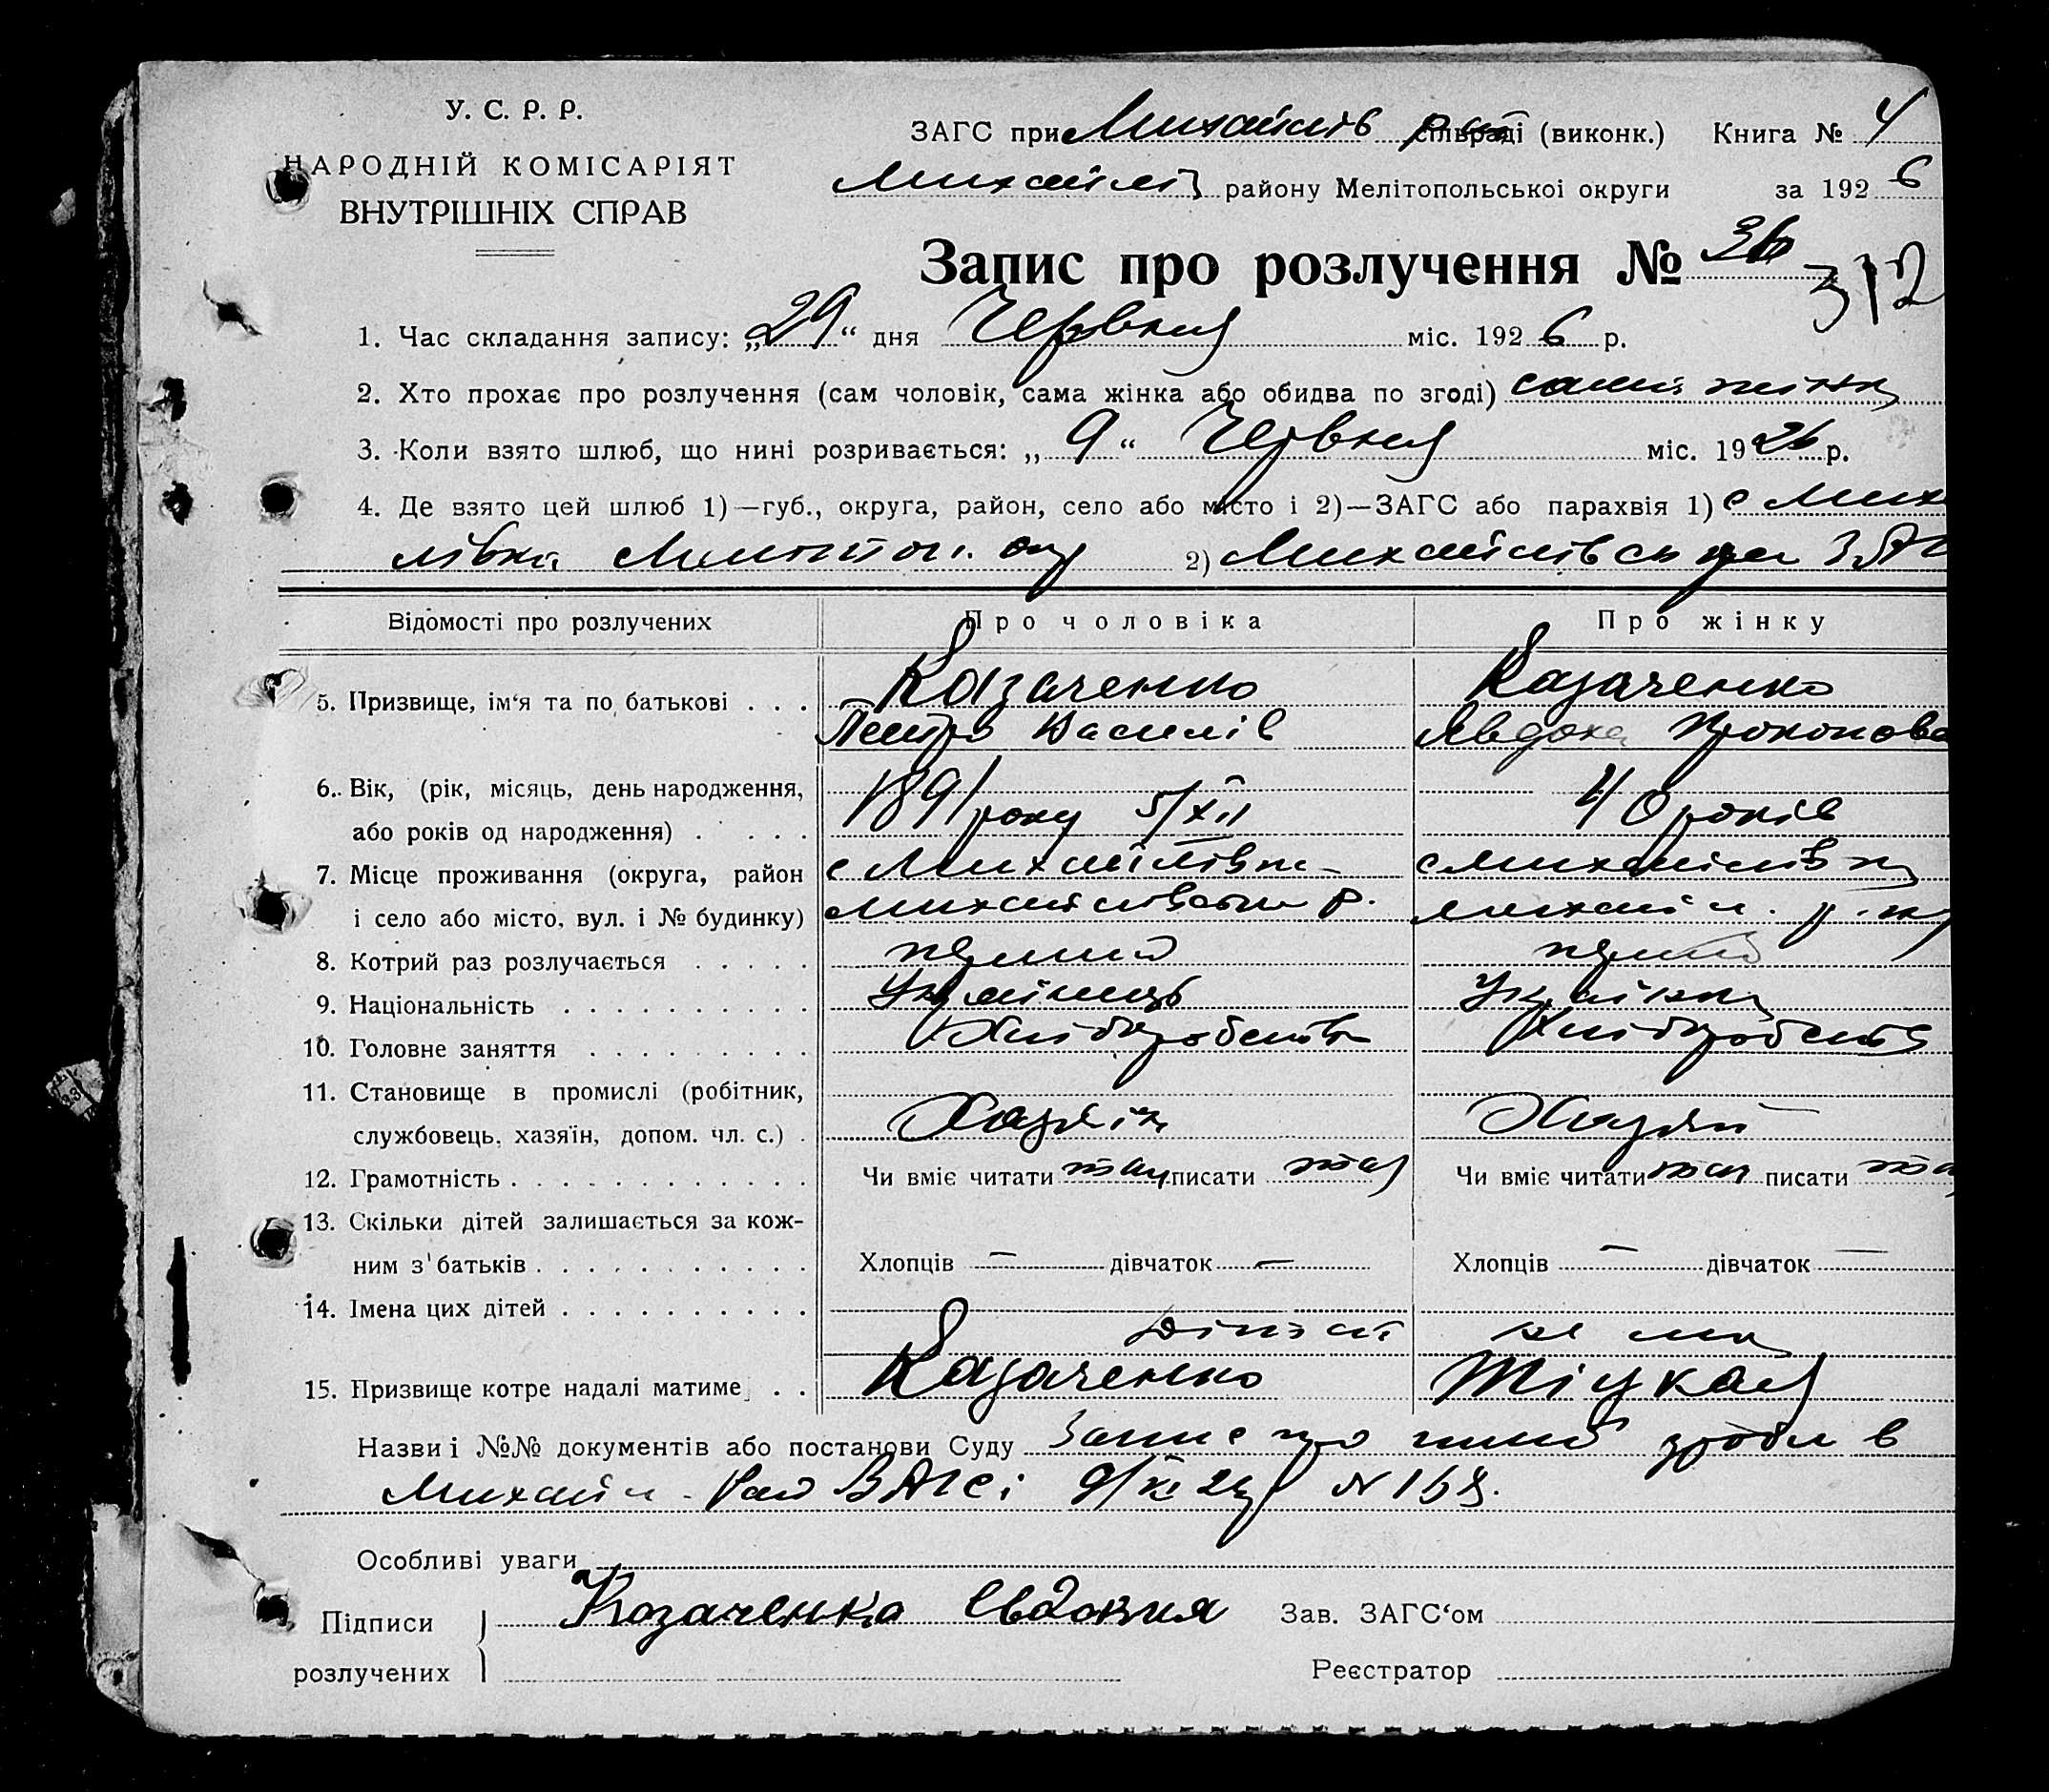 У. С. Р. Р.
НАРОДНІЙ КОМІСАРІЯТ
ВНУТРІШНІХ СПРАВ
ЗАГС при Михайлів сільраді (виконк.) Книга № 4
Михайлів району Мелітопольської округи за 1926
Запис про розлучення № 36
312
1. Час складання запису: „29“ дня Червня міс. 1926 р.
2. Хто прохає про розлучення (сам чоловік, сама жінка або обидва по згоді) сама жінка
3. Коли взято шлюб, що нині розривається: „9“ Червня міс. 19 р.
4. Де взято цей шлюб 1)—губ., округа, район, село або місто і 2)—ЗАГС або парахвія 1) с Миха
лівка Мелітоп. окр 2) Михайлівськ ЗАГ
Відомості про розлучених Про чоловіка Про жінку
5. Призвище, ім‘я та по батькові . . . Казаченко Казаченко
Петро Василів Явдоха Прокопова
6. Вік, (рік, місяць, день народження,
або років од народження) . . . . . 1891 року 5/XII 40 років
7. Місце проживання (округа, район с Михайлівка с Михайлівка
і село або місто, вул. і № будинку) Михайлівськ р. Михайл. р.
8. Котрий раз розлучається . . . . . перший перший
9. Національність . . . . . . . . . . Українець Українка
10. Головне заняття . . . . . . . . . Хліборобство Хліборобство
11. Становище в промислі (робітник,
службовець, хазяїн, допом. чл. с.) . Хазяїн Хазяй
12. Грамотність . . . . . . . . . . . . Чи вміє читати так писати так Чи вміє читати так писати так
13. Скільки дітей залишається за кож-
ним з'батьків . . . . . . . . . . . Хлопців — дівчаток — Хлопців — дівчаток —
14. Імена цих дітей . . . . . . . . . .
дітей нема
15. Призвище котре надалі матиме . . Казаченко Тіцкая
Назви і №№ документів або постанови Суду Запис про шлюб зробл в
Михайл. Рай ЗАГСі 9/ №
Особливі уваги
Підписи Казаченко Евдокия Зав. ЗАГС‘ом
розлучених Реєстратор